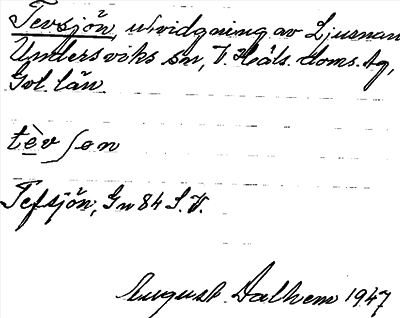 Tevsjön, utvidgning av Ljusnan
Undersviks sn, V. Häls. doms.tg,
Gvl. län
tὲvʃөn
Tefsjön, Gn 84 S.V.
August Dalhem 1947